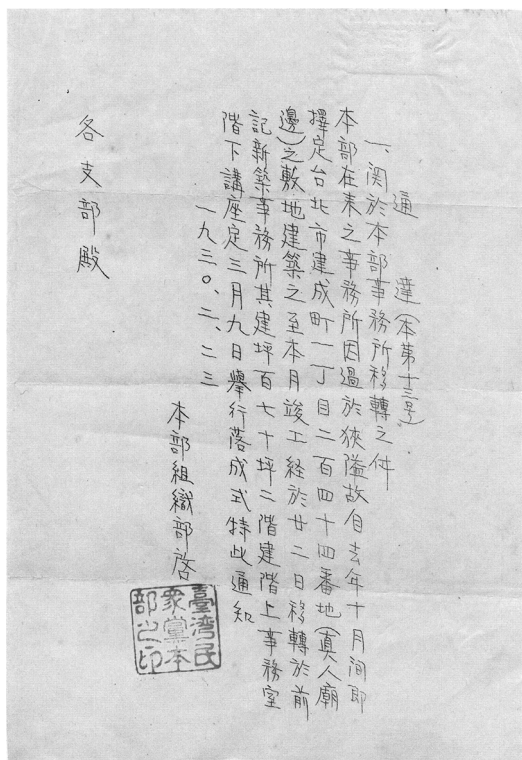 通　達（本第十三号）
一、関於本部事務所移轉之件
本部在来之事務所因過於狹隘故自去年十月间即
擇定台北市建成町一丁目二百四十四番地（真人廟
邊）之敷地建築之至本月竣工経於廿二日移轉於前
記新築事務所其建坪百七十坪二階建階上事務室
階下講座定三月九日舉行落成式特此通知
一九三〇、二、二三
本部組織部啓
各支部殿
臺湾民
衆黨本
部之印